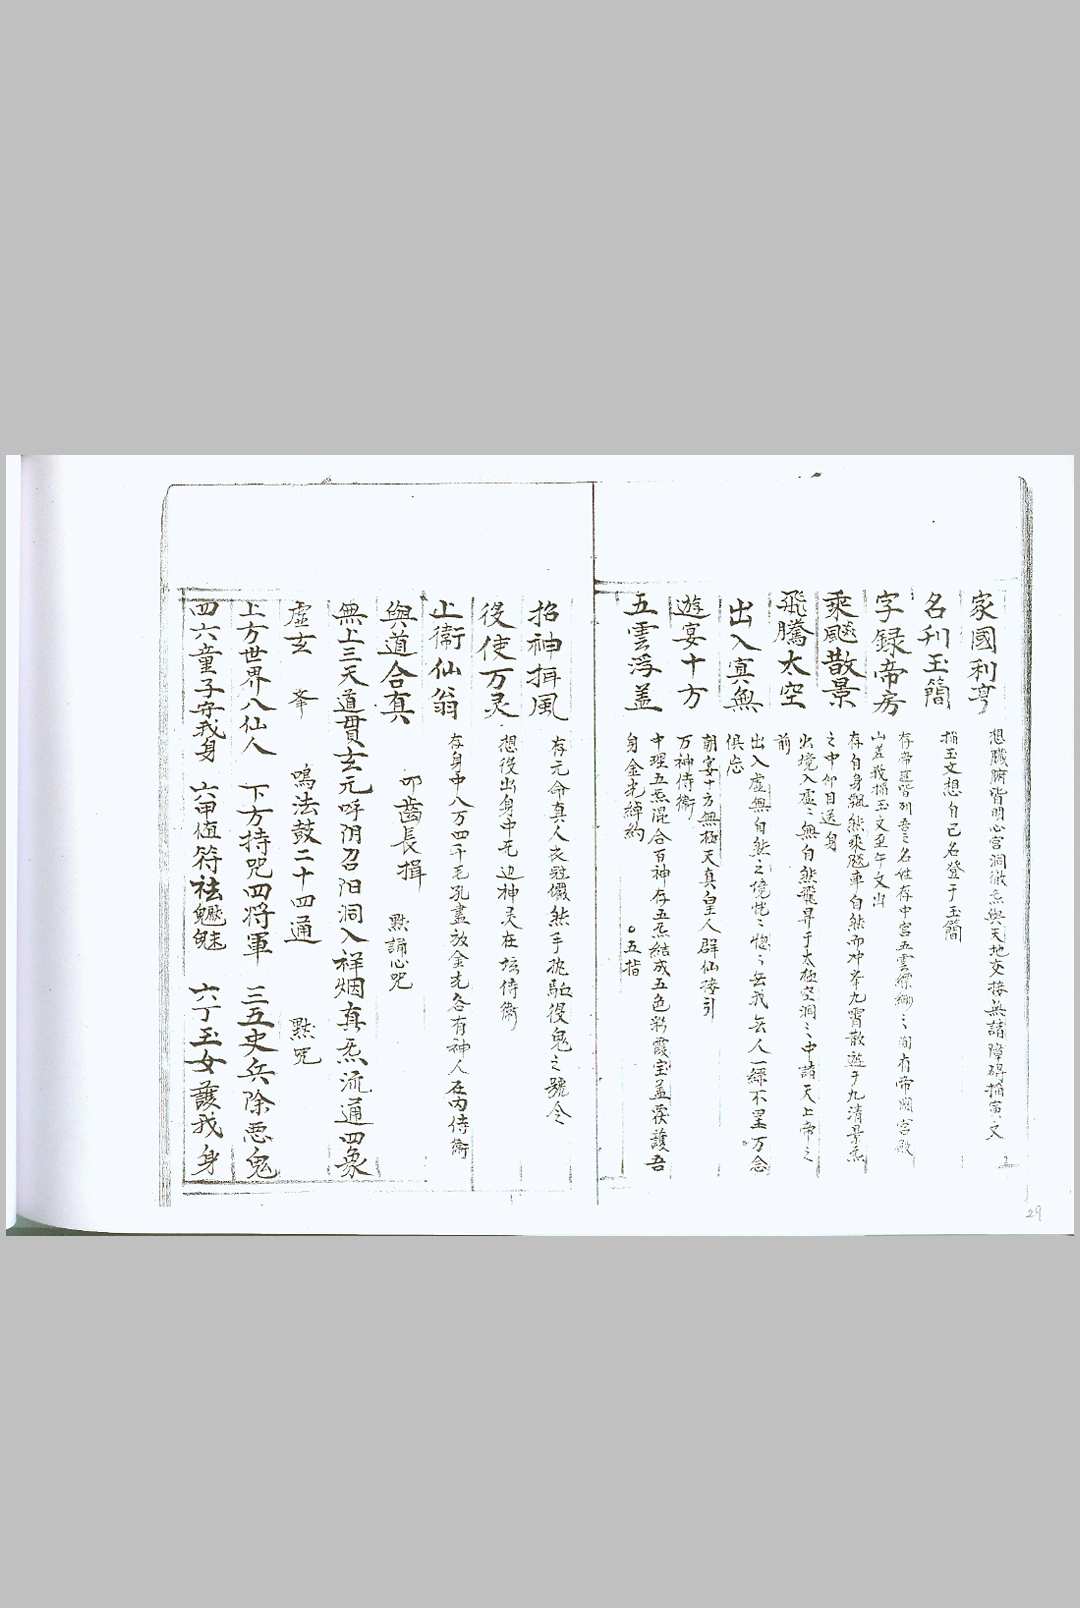 家國利亨 想臟腑皆明心宮洞徹炁與天地交接無諸障碍掐寅文
名刊玉簡 掐玉文想自己名登于玉簡
字録帝房 存帝廷皆列吾之名性存中宮五雲縹緲之間有帝闕宮殿
山羞我掐玉文至午文出
乘飚散景 存自身飄然乘飚車自然而冲举九霄散遊于九清景炁
之中仰目送身
飛騰太空 出境入虛之無自然飛昇于太極空洞之中諸天上帝之
前
出入寘無 出入虛無自然之境恍之惚之無我無人一絲不罣万念
俱忘
遊宴十方 朝宴十方無極天真皇人群仙接引
万神侍衛
五雲浮盖 中理五炁混合百神存五炁結成五色彩霞宝盖覆護吾
身金光綽約 五指
招神揖風 存元命真人衣冠儼然手执驅役鬼之號令
役使万灵 想役出身中无边神灵在坛侍衛
止衛仙翁 存身中八万四千毛孔盡放金光各有神人在内侍衛
與道合真 叩齒長揖 黙誦心咒
無上三天道貫玄元呼阴召阳洞入祥烟真炁流通四象
虛玄 峯 鳴法鼓二十四通 黙咒
上方世界八仙人 下方持咒四将軍 三五吏兵除恶鬼
四六童子守我身 六甲值符祛魍魅 六丁玉女護我身
29